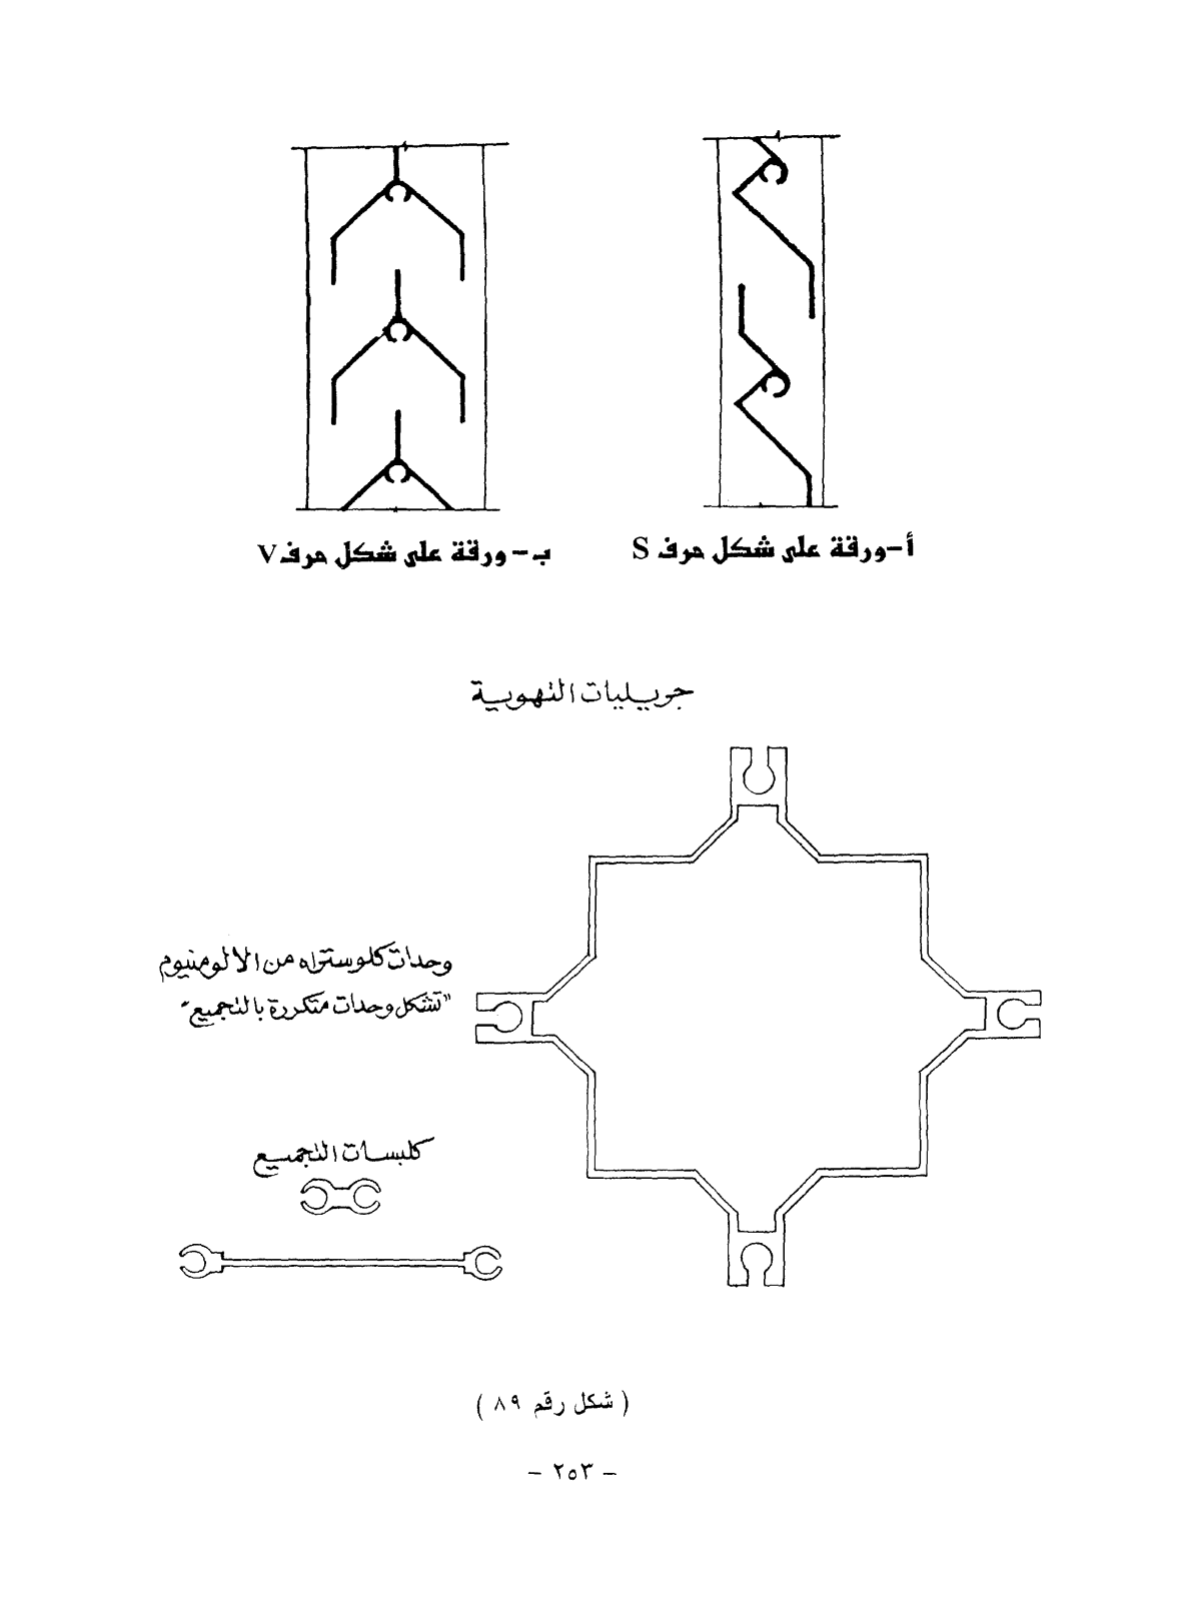 أ-ورقة على شكل حرف S
ب- ورقة على شكل حرف V
جريليات التهوية
وحدات كلوستراه من الالومنيوم
"تشكل وحدات متكررة بالتجميع"
كلبسات التجميع
( شكل رقم ٨٩ )
- ٢٥٣ -